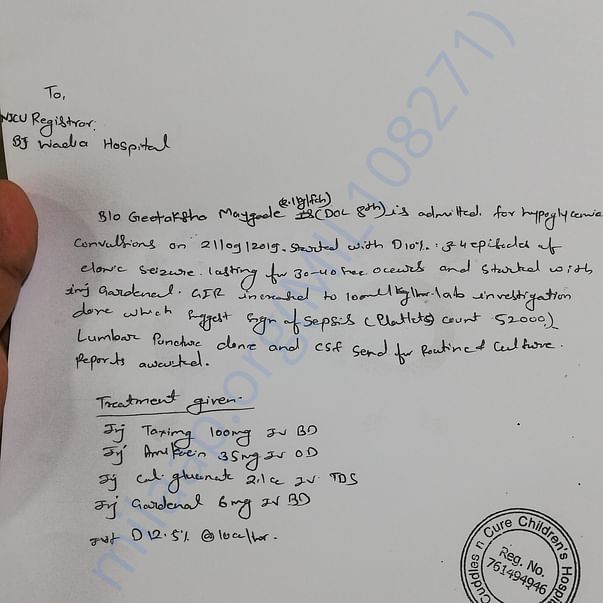 To,
NICU Registrar.
BJ Wadia Hospital
(2.1kg/fch)
B/o Geetaksha Maygade (DOL 8th) is admitted for hypoglycemic
convulsions on 21/09/2019. started with D10%. 3-4 episodes of
clonic seizure. lasting for 30-40 sec occurs and started with
inj Gardenal. GIR increased to lab investigation
done which suggest sign of sepsis (Platlets count 52000)
Lumbar Puncture done and CSF send for Routine & Culture.
Reports awaited.
Treatment given.
Inj Taximg 100mg IV BD
Inj Amikacin 35mg IV OD
Inj Cal. gluconat 2.1cc IV TDS
Inj Gardenal 6mg IV BD
IVF D12.5% @10cc/hr.
milaap.org(MIL108271)
Cuddles n Cure Children's
Reg. No.
761494946